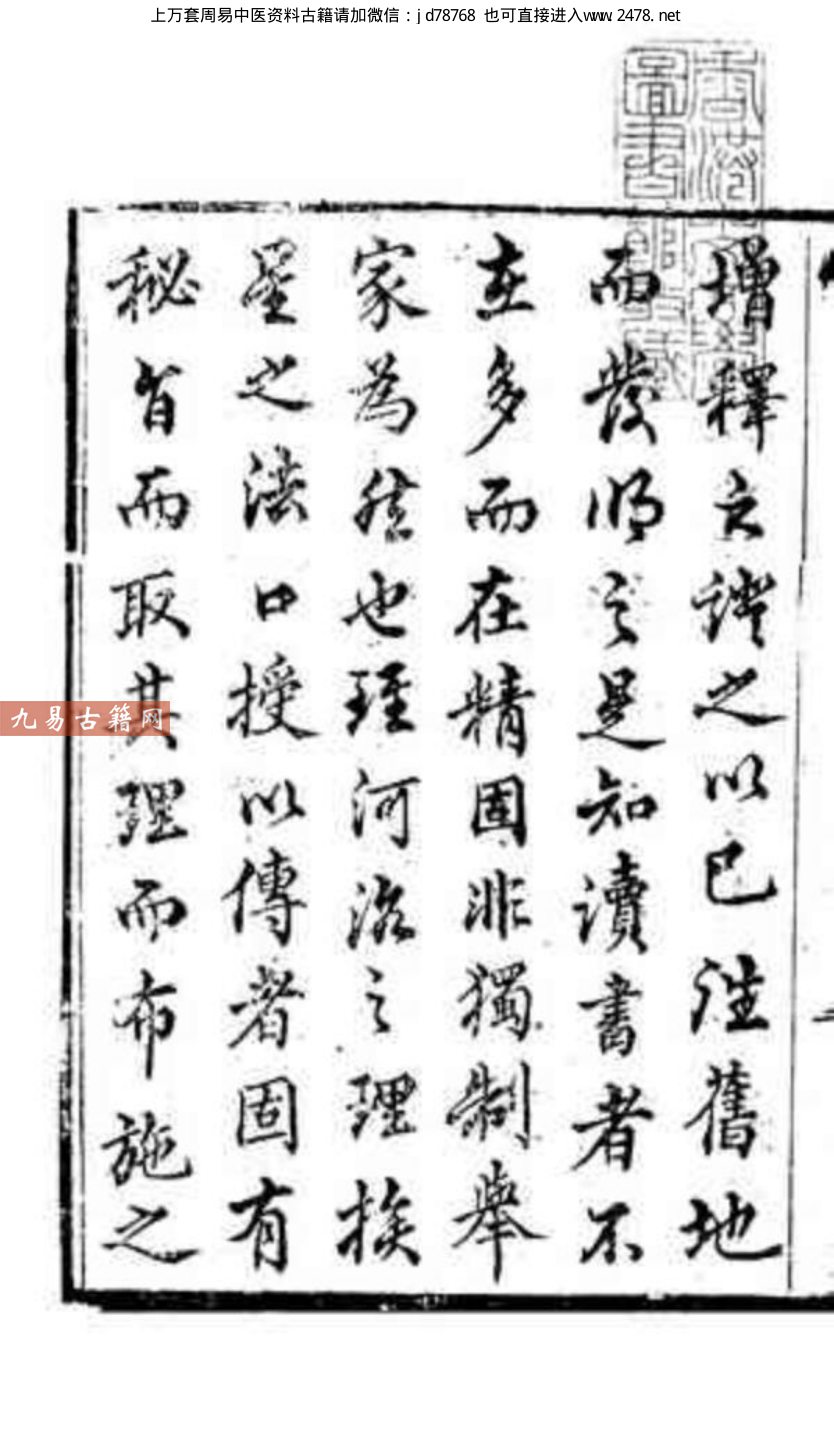 上万套周易中医资料古籍请加微信：jd78768 也可直接进入www.2478.net
增釋之證之以已往舊地
而發明之是知讀書者不
在多而在精固非獨制舉
家為然也理河洛之理挨
星之法口授以傳者固有
秘旨而取其理而布施之
九易古籍网